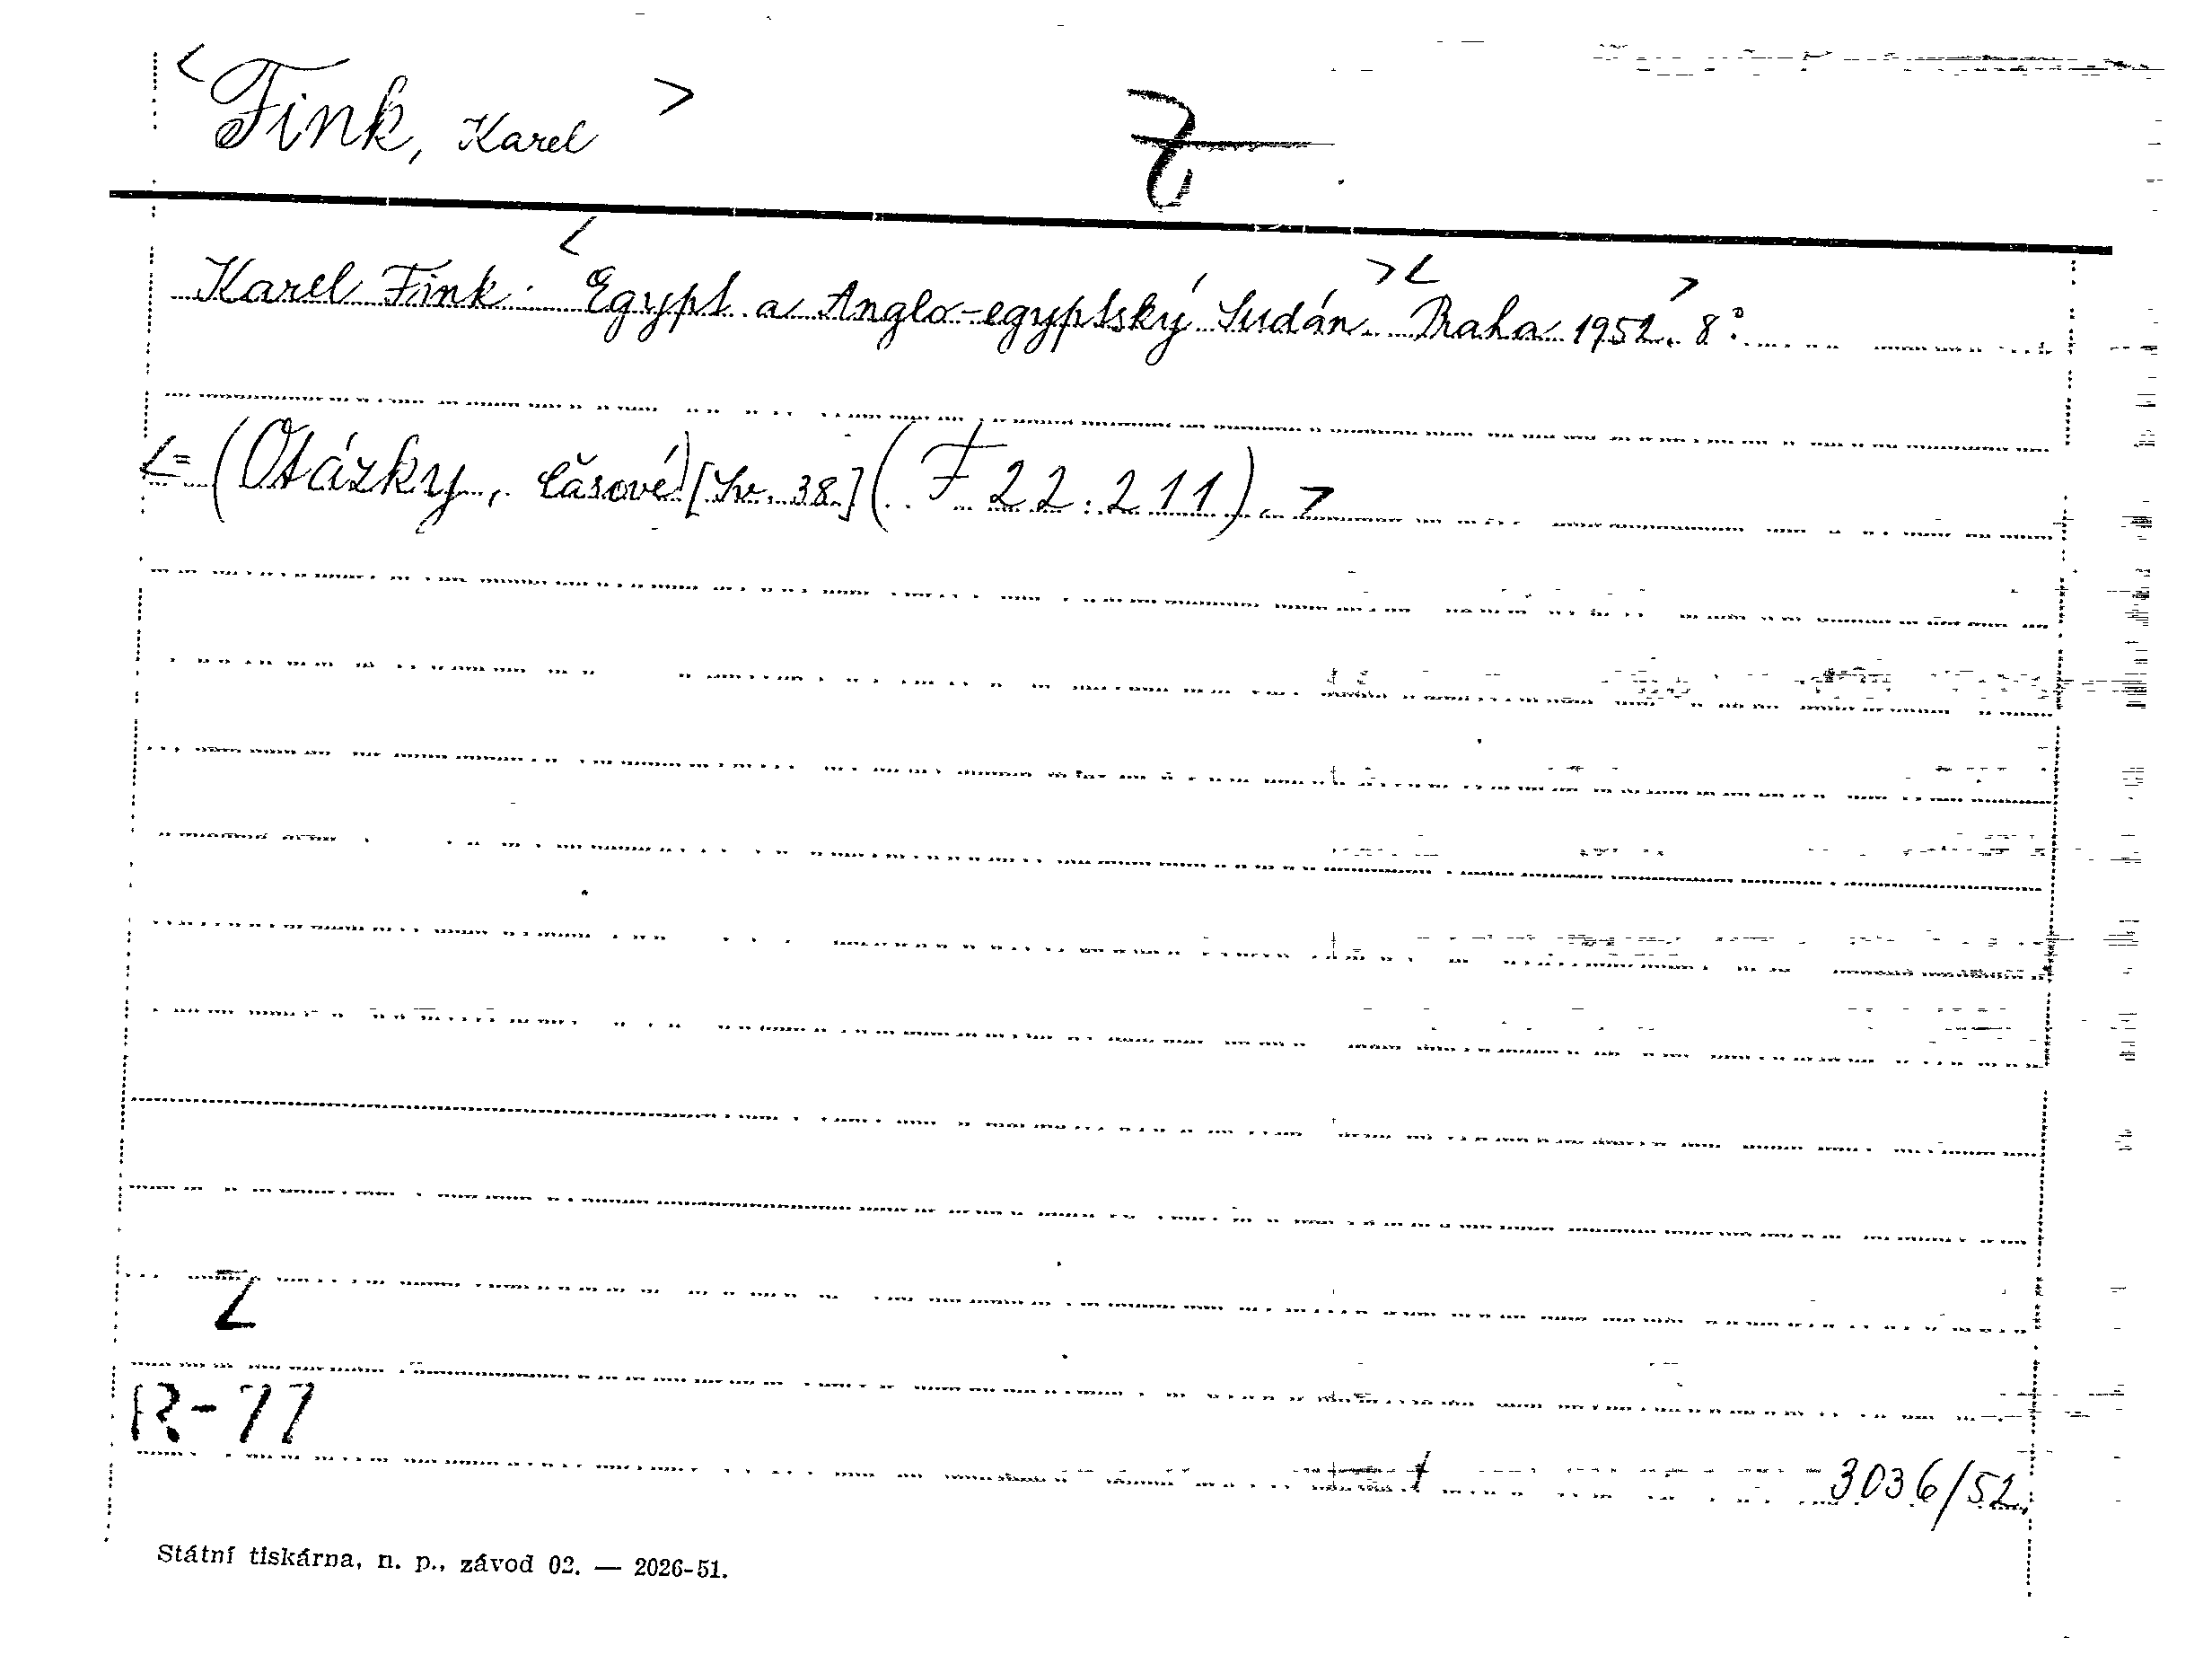 < Fink, Karel >
Z
Karel Fink: < Egypt a Anglo-egyptský Sudán >< Praha 1952. > 8°.
<= (Otázky, časové) [Sv. 38.] (F 22.211). >
Z
R-77
3036/52.
Státní tiskárna, n. p., závod 02. — 2026-51.